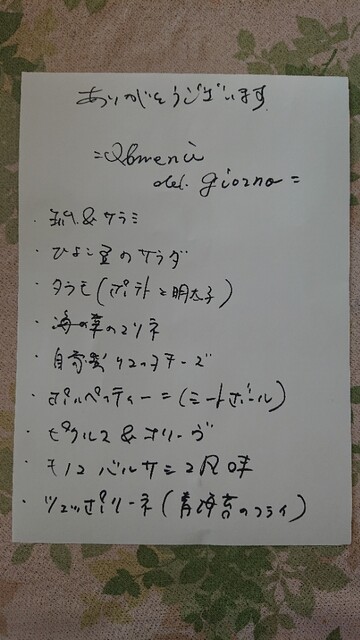 ありがとうございます
=Ilmenù
del. giorno=
・ &サラミ
・ひよこ豆のサラダ
・タラモ(ポテトと明太子)
・海草のマリネ
・自家製リコッタチーズ
・ポルペッティーニ(ミートボール)
・ピクルス&オリーヴ
・キノコバルサミコ風味
・ツェッポリーネ(青海苔のフライ)